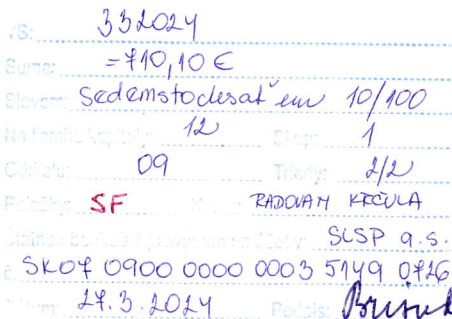 VS: 332024
Suma: =710,10 €
Slovom: Sedemstodesať eur 10/100
12 Skup: 1
Oddiel: 09 Triedy: 2/2
Položky: SF RADOVAN KRČULA
SLSP a.s.
SK07 0900 0000 0003 5149 0726
27.3.2024 Podpis: